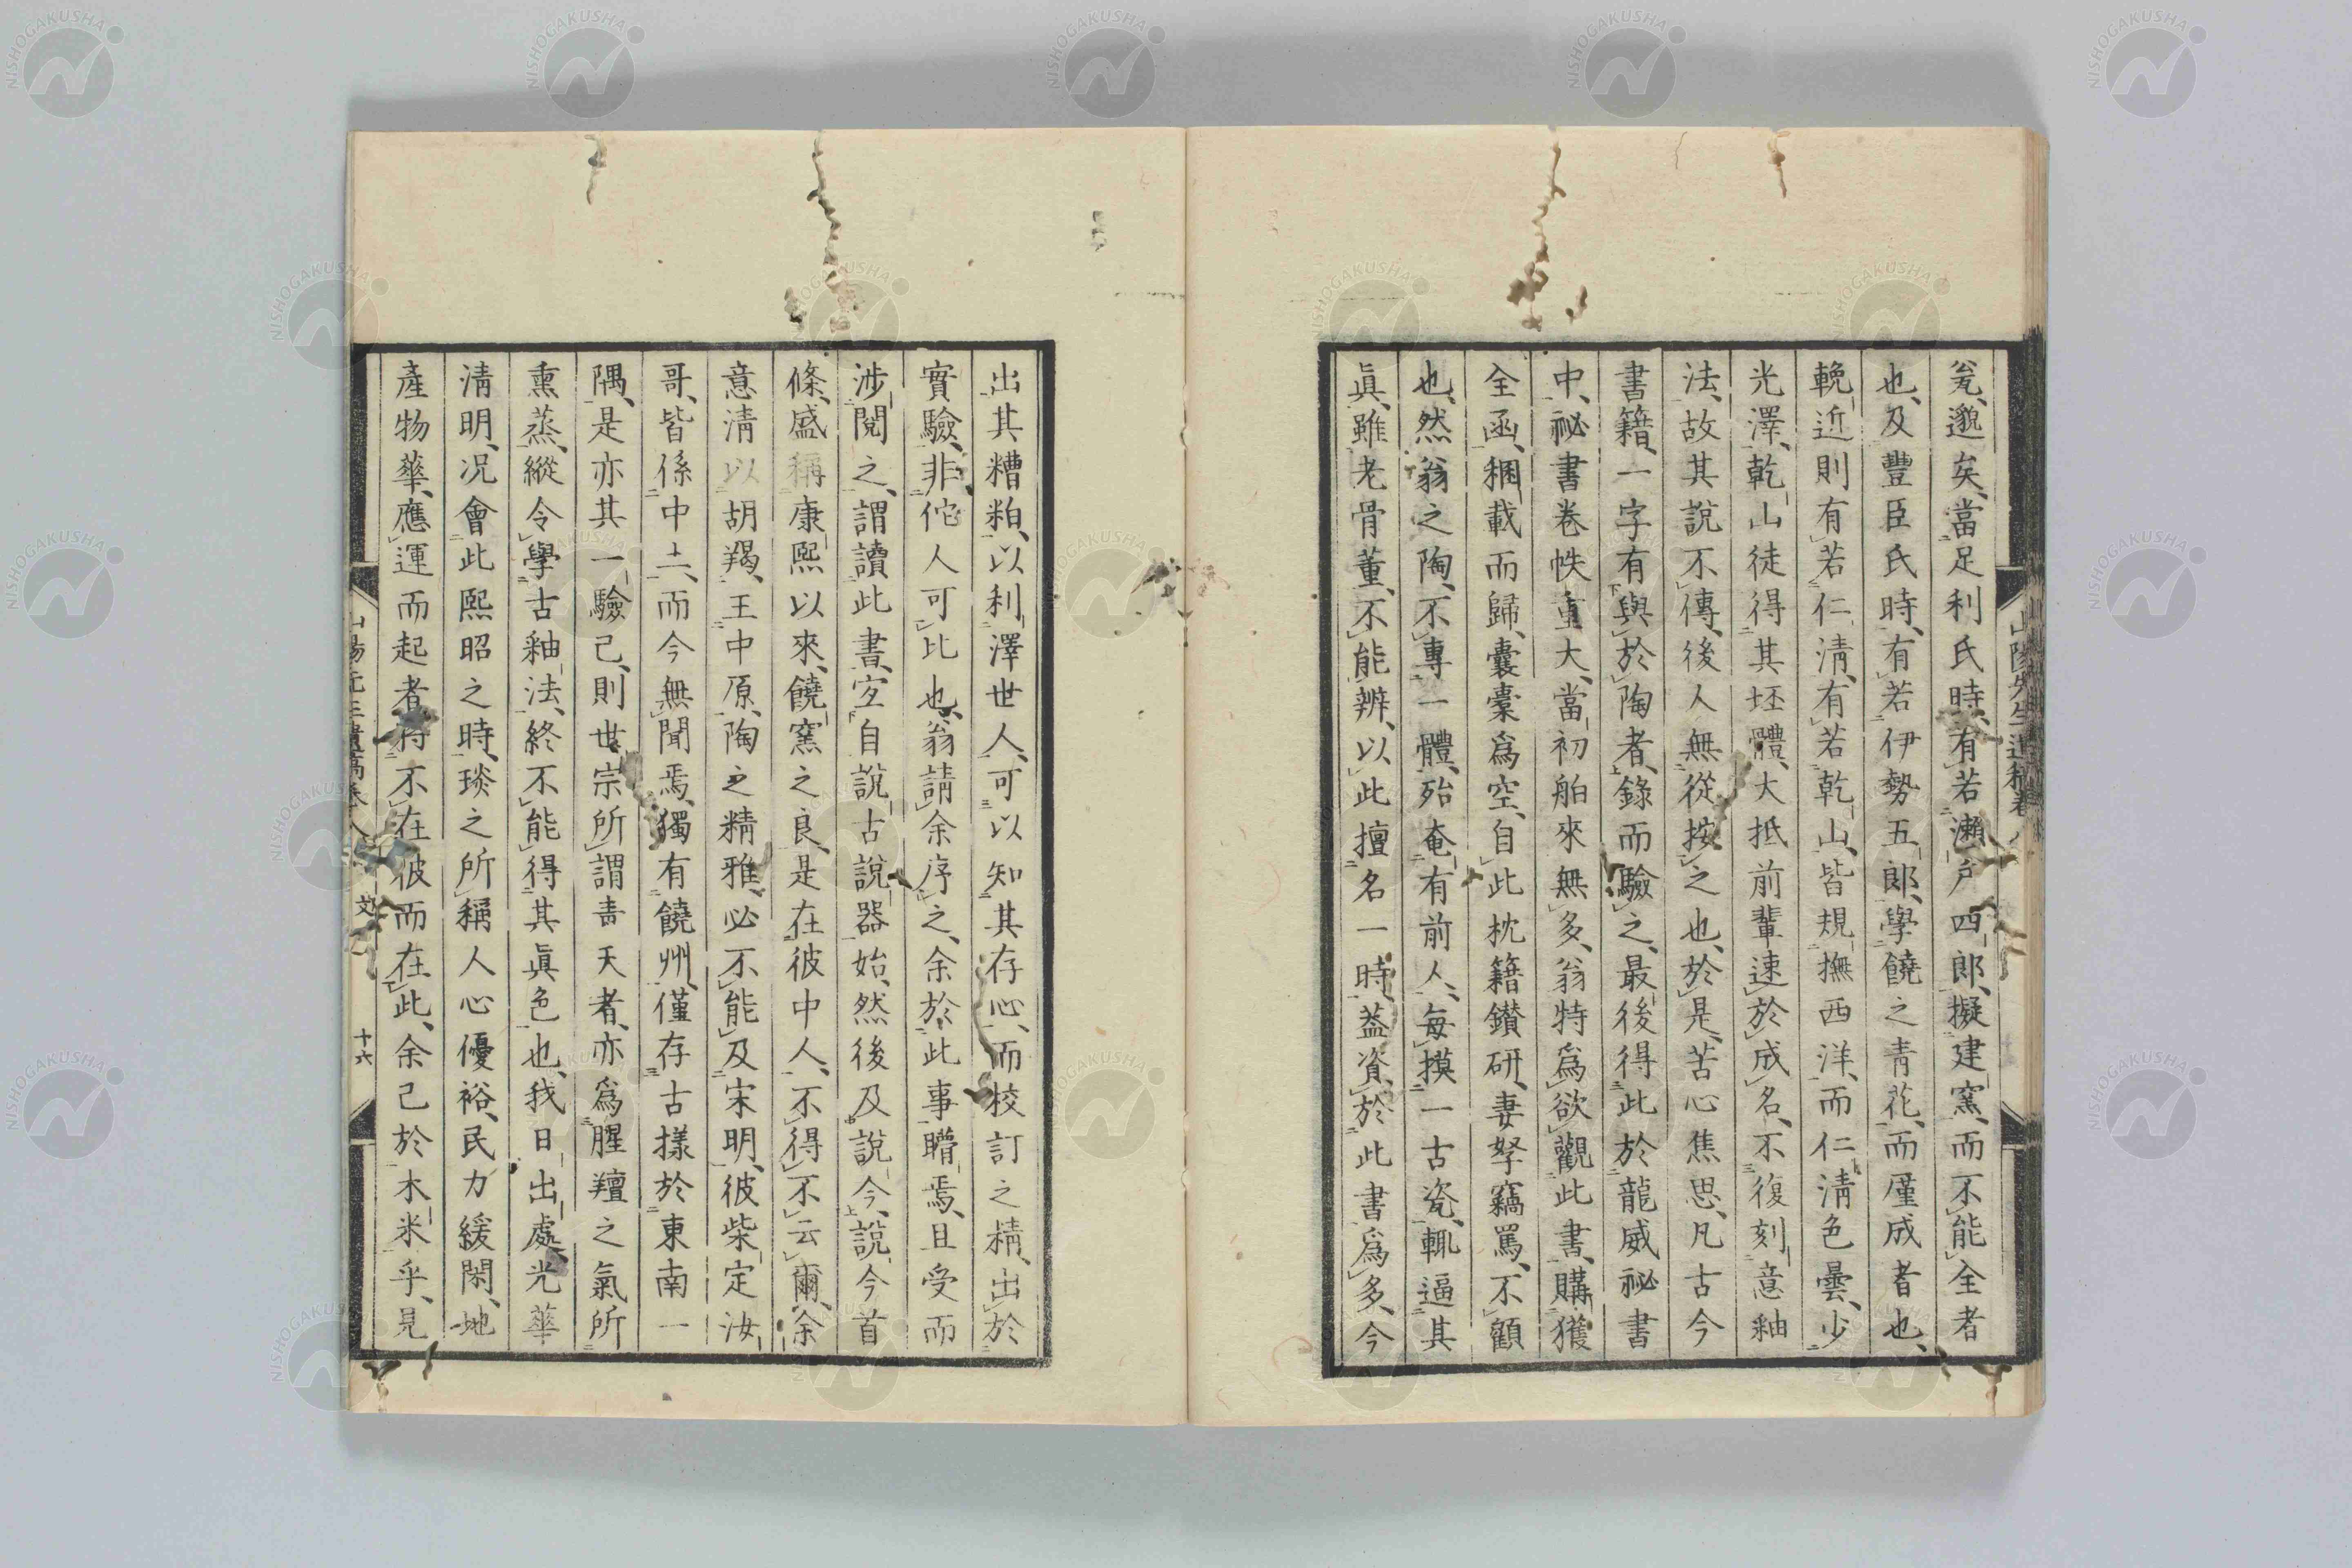 瓮、邈矣、當足利氏時、有若瀨戶四郎、擬建窯、而不能全者
也、及豐臣氏時、有若伊勢五郎、學饒之青花、而僅成者也、
輓近則有若仁淸、有若乾山、皆規撫西洋、而仁淸色曇、少
光澤、乾山徒得其坯體、大抵前輩速於成名、不復刻意釉
法、故其說不傳、後人無從按之也、於是、苦心焦思、凡古今
書籍、一字有與於陶者、錄而驗之、最後得此於龍威祕書
中、祕書卷帙重大、當初舶來無多、翁特爲欲觀此書、購獲
全函、捆載而歸、囊橐爲空、自此枕籍鑽研、妻孥竊罵、不顧
也、然翁之陶、不專一體、殆奄有前人、每摸一古瓷、輒逼其
眞、雖老骨董、不能辨、以此擅名一時、葢資於此書爲多、今
出其糟粕、以利澤世人、可以知其存心、而校訂之精、出於
實驗、非佗人可比也、翁請余序之、余於此事瞢焉、且受而
涉閱之、謂讀此書、宜自說古說器始、然後及說今、說今首
條、盛稱康熙以來、饒窯之良、是在彼中人、不得不云爾、余
意淸以胡羯、王中原、陶之精雅、必不能及宋明、彼柴定汝
哥、皆係中土、而今無聞焉、獨有饒州、僅存古樣於東南一
隅、是亦其一驗已、則世宗所謂壽夭者、亦爲腥羶之氣所
熏蒸、縱令學古釉法、終不能得其眞色也、我日出處光華
淸明、況會此熙昭之時、琰之所稱人心優裕、民力緩閑、地
產物華、應運而起者、將不在彼而在此、余已於木米乎、見
山陽先生遺稿卷八 文 十六